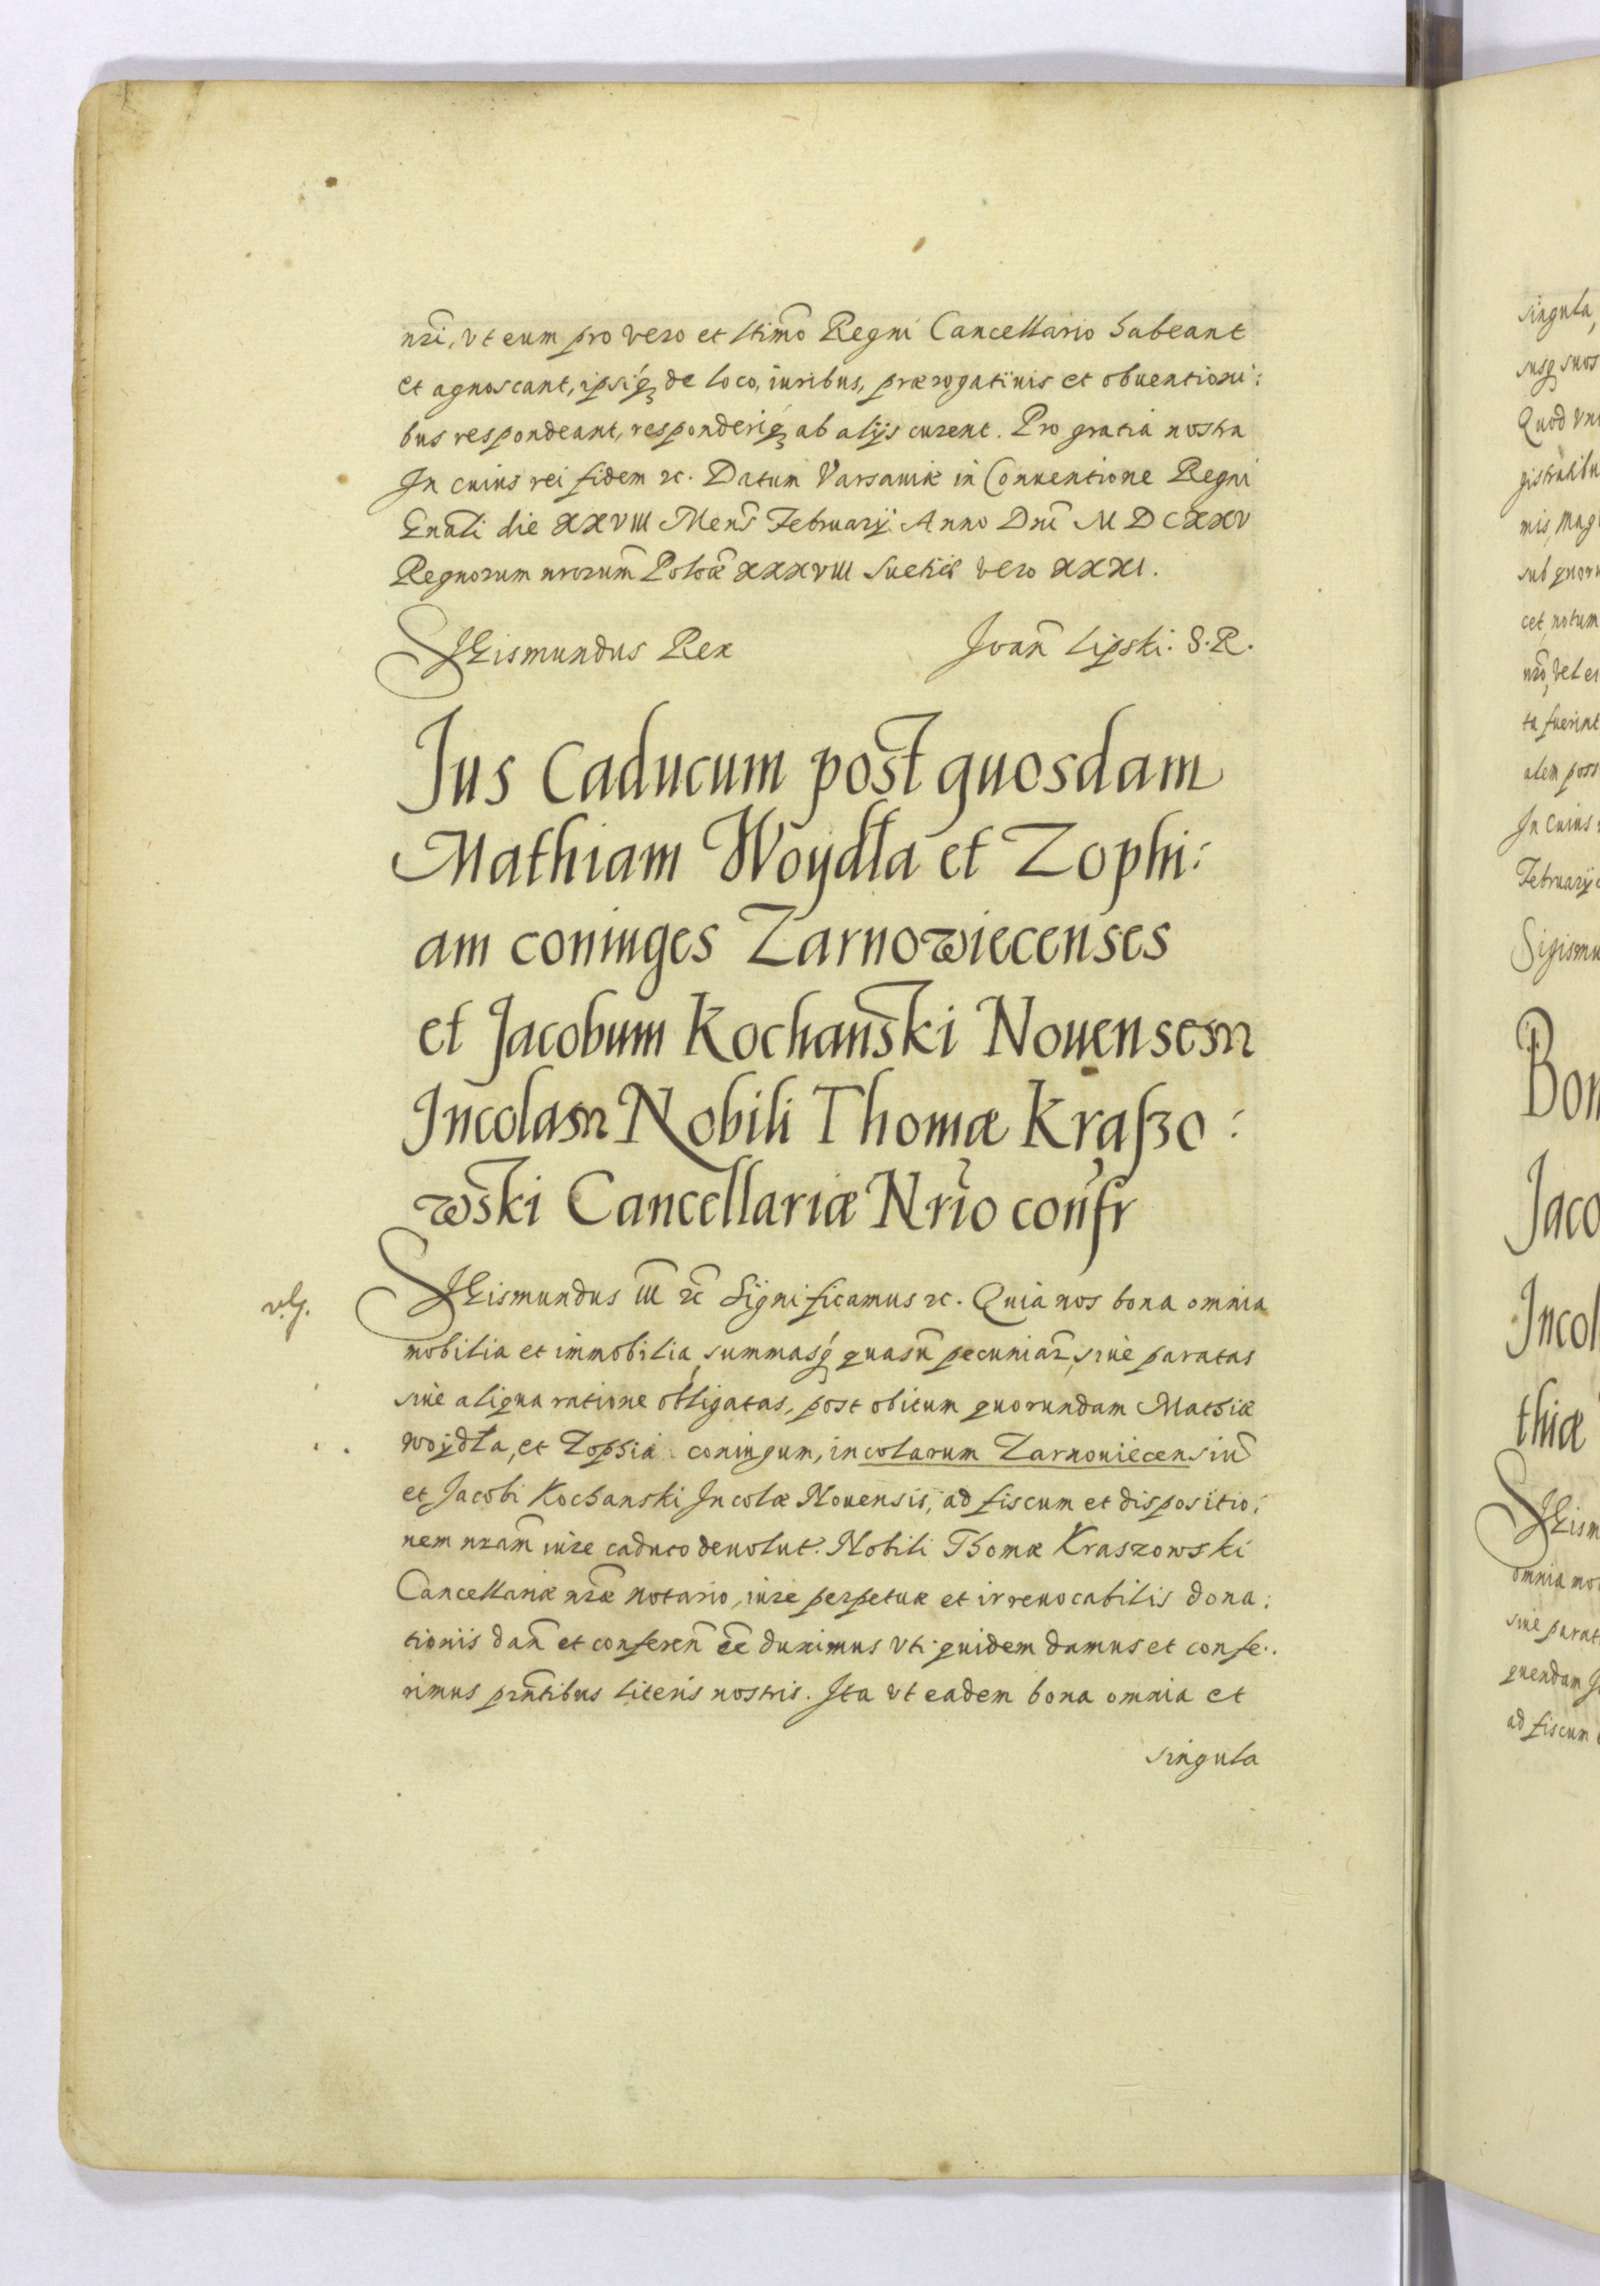 nr̃i, vt eum pro vero et ltimõ Regni Cancellario habeant
et agnoscant, ipsiq́ꝫ de loco, iuribus, prærogatiuis et obuentioni:
bus respondeant, responderiq́ꝫ ab alijs curent. Pro gratia nostra
In cuius rei fidem ꝛc. Datum Varsauiæ in Conuentione Regni
Gnãli die XXVIII Mens̃ February Anno Dnĩ M D CXXV
Regnorum nrorum̃ Polõæ XXXVIII Suetiæ vero XXXI.
Sigismundus Rex
Joañ Lipski. S. R.
Jus Caducum post quosdam
Mathiam Woydła et Zophi:
am coniuges Zarnowiecenses
et Jacobum Kochański Nouensem
Incolam Nobili Thomæ Kraſzo:
wski Cancellariæ Nrĩo confr
Sigismundus III ꝛc̃ Significamus ꝛc. Quia nos bona omnia
mobilia et immobilia, summasq́ꝫ quasuñ pecuniar̃, siue paratas
siue aliqua ratione obligatas, post obitum quorundam Mathiæ
Woydła, et Zophia coniugum, incolarum Zarnouiecensiũ
et Jacobi Kochanski Incolæ Nouensis, ad fiscum et dispositio:
nem nram̃ iure caduco deuolut. Nobili Thomæ Kraszowski
Cancellariæ nr̃æ Notario, iure perpetuæ et irreuocabilis dona:
tionis dañ et conferen̂ eẽ duximus vti quidem damus et confe:
rimus prñtibus literis nostris. Ita vt eadem bona omnia et
singula
singula,
susq suos
Quod vni
gistratibu
mis, Magi
sub quoru
cet, notum
nrõ, vel ei
ta fuerint
alem poss
In Cuius
February
Sigismu
Bon
Jaco
Incol
thiæ
Sigism
omnia mo
siue parat
quendam J
ad fiscum